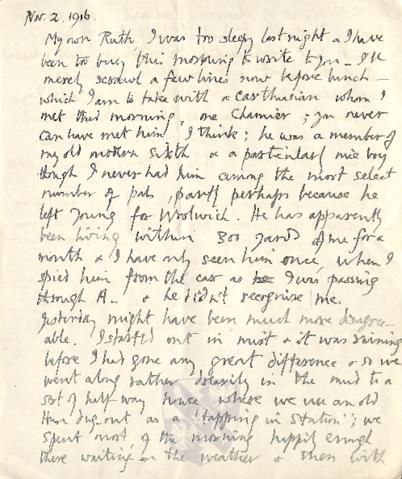 Nov. 2. 1916.
My own Ruth, I was too sleepy last night & I have
been too busy this morning to write to you – I'll
merely scrawl a few lines now before lunch –
which I am to take with a Carthusian whom I
met this morning, one Chamier; you never
can have met him I think; he was a member of
my old modern Sixth & a particularly nice boy
though I never had him among the most select
number of pals, partly perhaps because he
left young for Woolwich. He has apparently
been living within 300 yards of me for a
month & I have only seen him once, when I
spied him from the car as he I was passing
through A.. & he didn't recognise me.
Yesterday might have been much more disagree-
able. I started out in mist & it was raining
before I had gone any great difference & so we
went along rather drearily in the mud to a
sort of half way house where we use an old
Hun dug-out as a 'tapping in station'; we
spent most of the morning happily enough
there waiting on the weather & then with